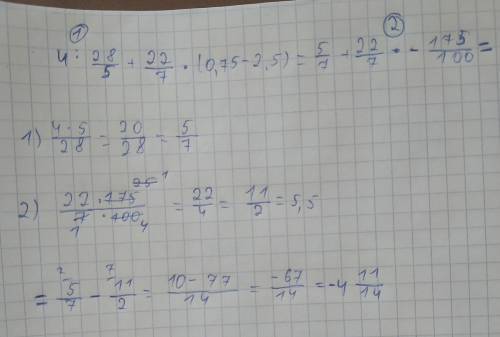 ① ②
4 : 28/5 + 22/7 · (0,75 - 2,5) = 5/7 + 22/7 · - 175/100 =
1) 4·5/28 = 20/28 = 5/7
2) 22 · 175 25 1 / 7 1 · 100 4 = 22/4 = 11/2 = 5,5
= 2 5/7 - 7 11/2 = 10 - 77/14 = -67/14 = -4 11/14